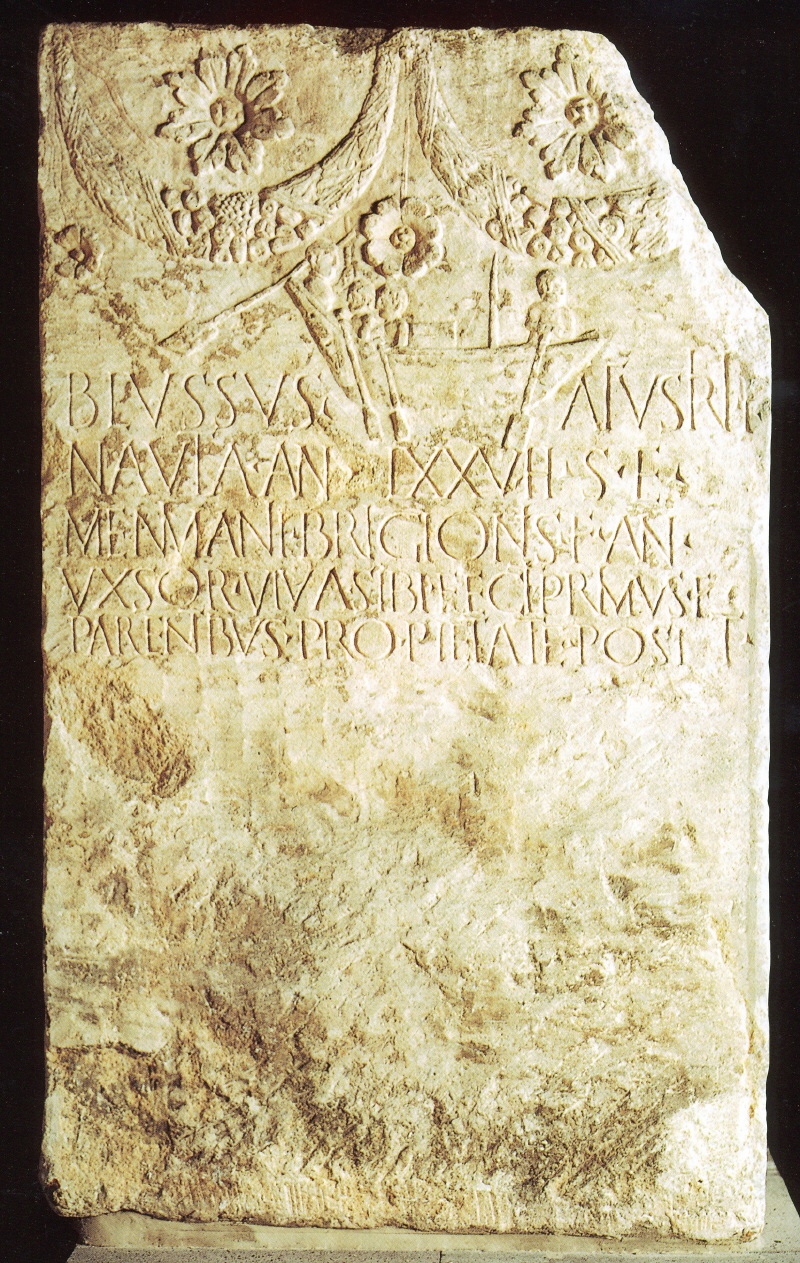 BLVSSVS ATVSIRI
NAVTA·AN LXXV·H·S·E·
MENIMANI·BRIGIONIS·F·AN·
VXSOR·VIVA·SIBI·FECIT·PRIMVS·F
PARENTIBVS·PRO·PIETATE·POSIT